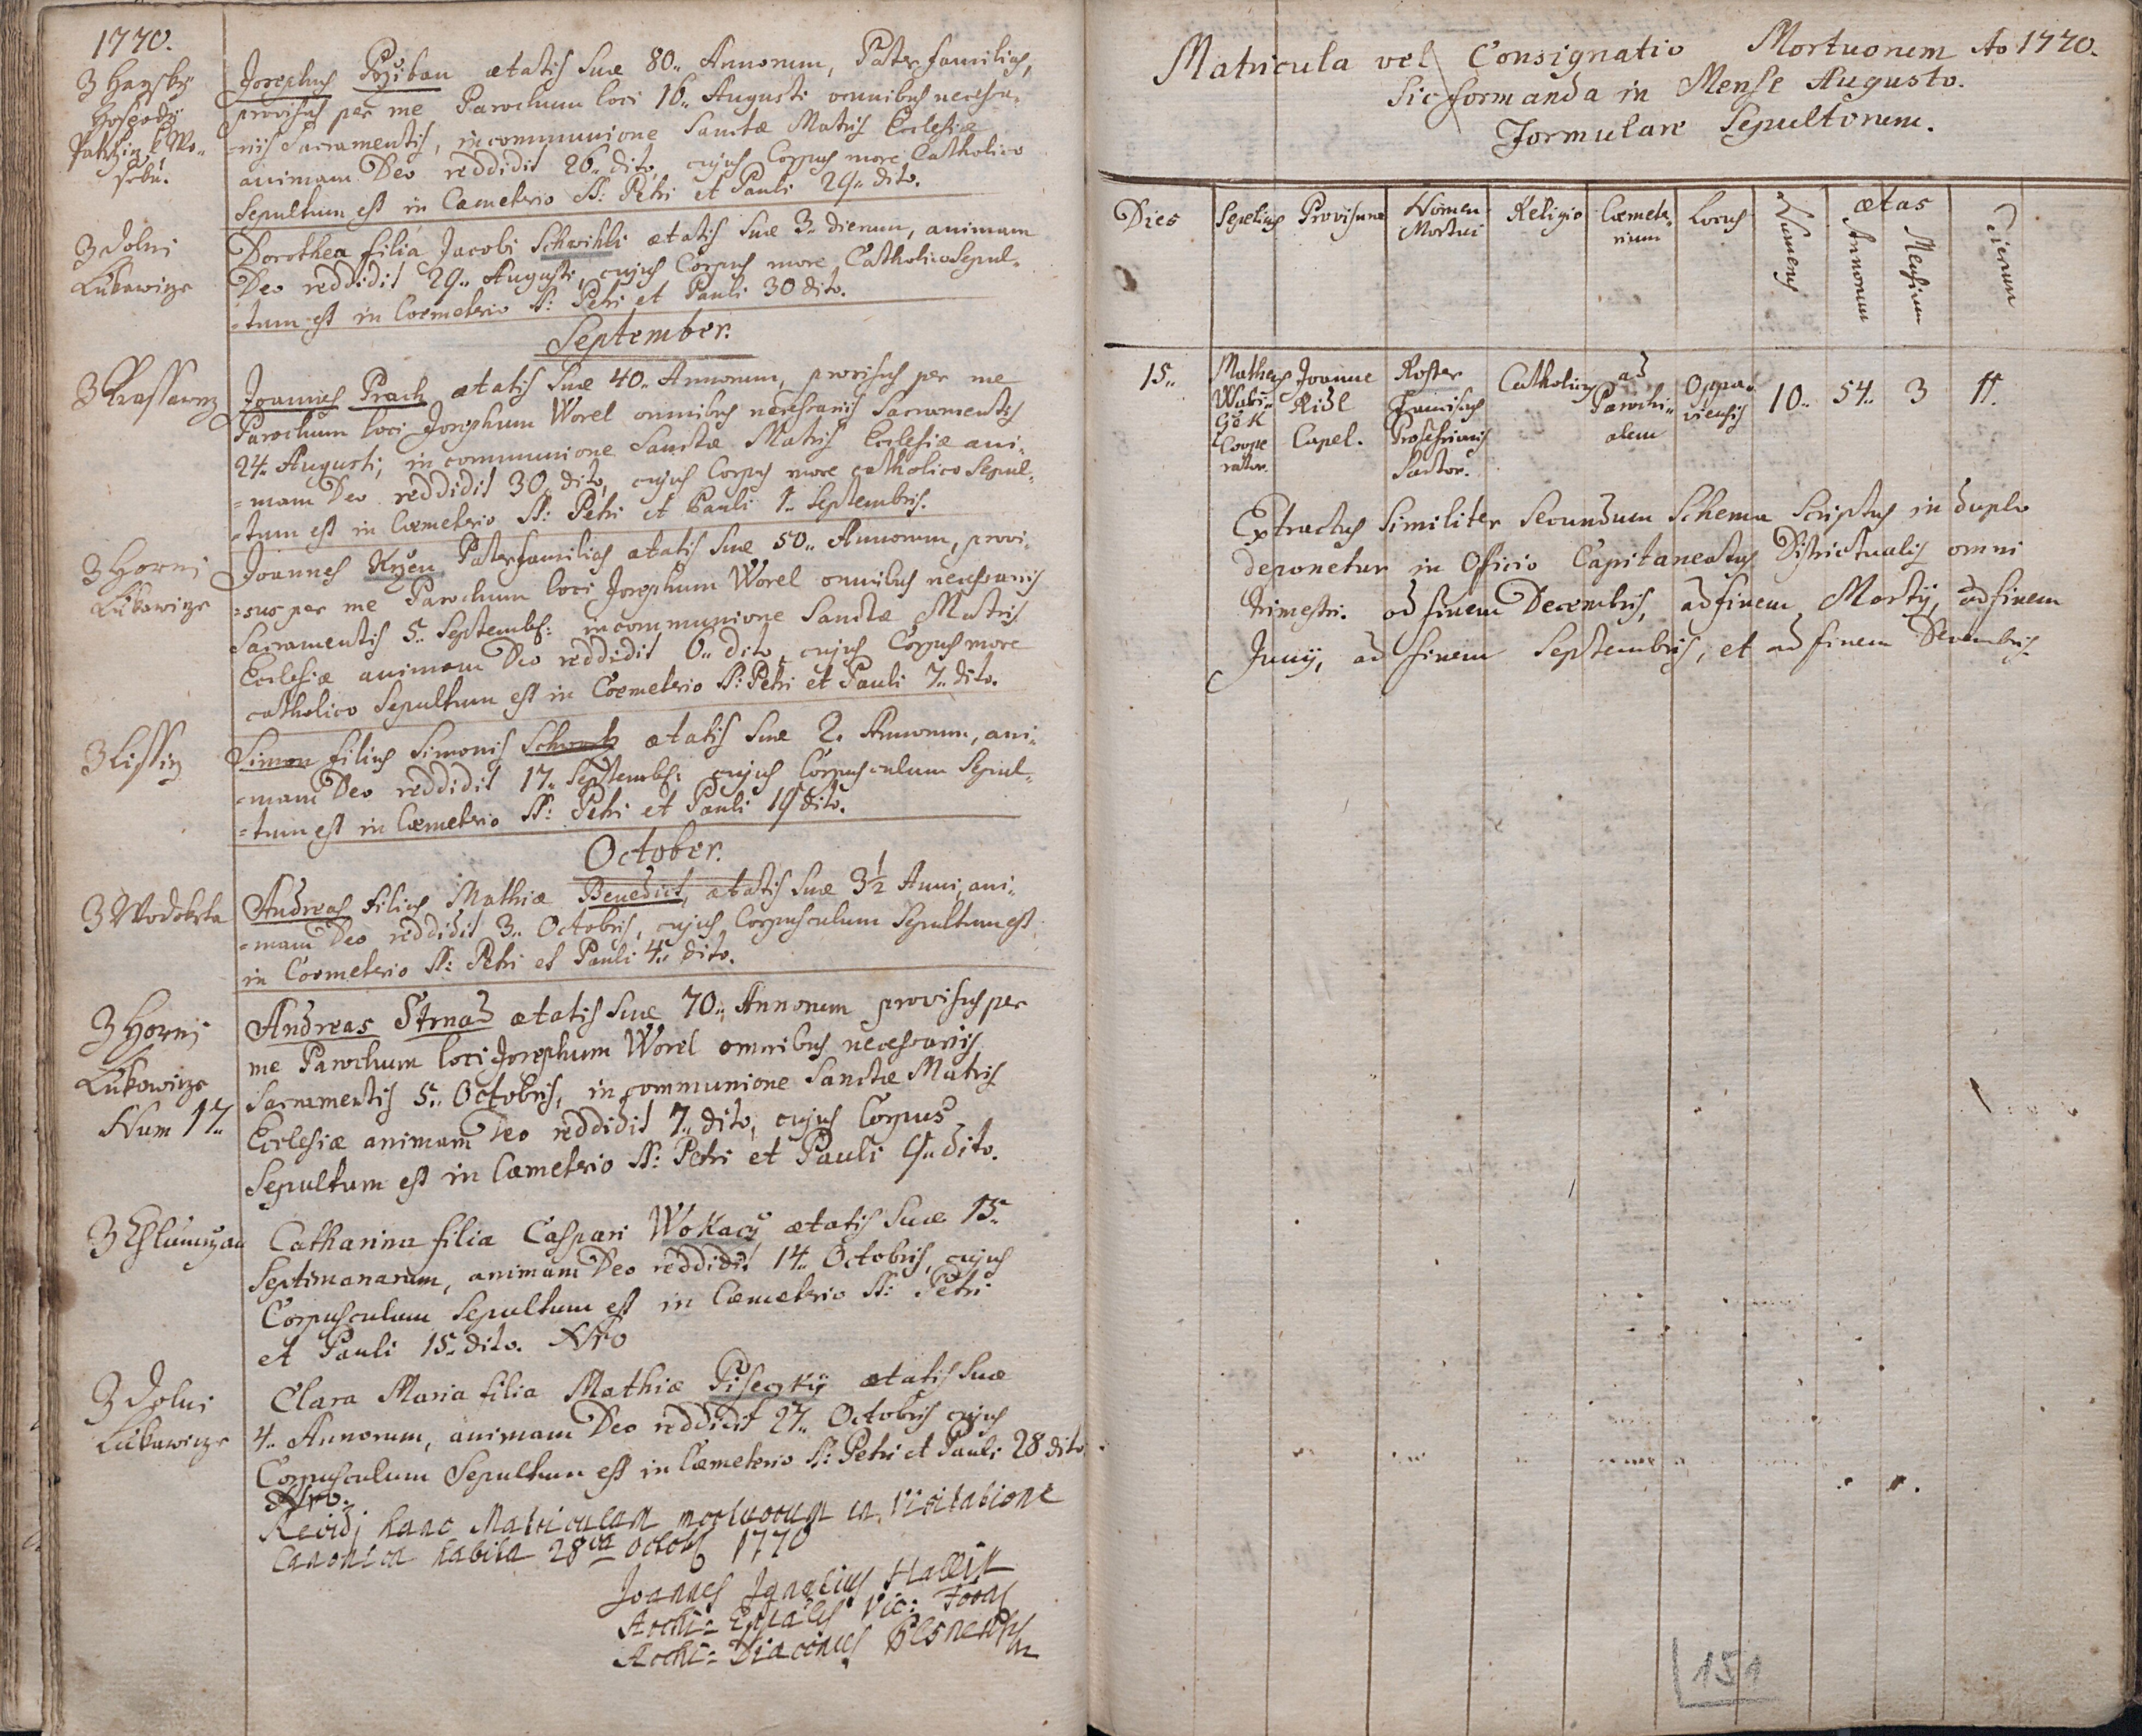 1770.
Z Hanskÿ
Hospodÿ
Josephus Pržiban ætatis Suæ 80.. Annorum, Pater familias,
provisus per me Parochum loci 16.. Augusti omnibus necessa-
-riis Sacramentis, in communione Sanctæ Matris Ecclesiæ
animam Deo reddidit 26.. dito, cujus Corpus more Catholico
Sepultum est in Cæmeterio SS: Petri et Pauli 29.. dito.
Z Dolni
Lukawicze
Dorothea filia Jacobi Schwihli ætatis Suæ 3.. dierum, animam
Deo reddidit 29.. Augusti, cujus Corpus more Catholico Sepul-
-tum est in Coemeterio SS: Petri et Pauli 30 dito.
September.
Z Krassawcz
Joannes Prach ætatis Suæ 40.. Annorum, provisus per me
Parochum loci Josephum Worel omnibus necessariis Sacramentis
24. Augusti, in communione Sanctæ Matris Ecclesiæ ani-
=mam Deo reddidit 30.. dito, cujus Corpus more catholico Sepul-
-tum est in Cæmeterio SS: Petri et Pauli 1.. Septembris.
Z Horni
Lukawicze
Joannes Kržen Paterfamilias ætatis Suæ 50.. Annorum, provi-
=sus per me Parochum loci Josephum Worel omnibus necessariis
Sacramentis 5.. Septembr: in communione Sanctæ Matris
Ecclesiæ animam Deo reddidit 6.. dito, cujus Corpus more
catholico Sepultum est in Coemeterio SS: Petri et Pauli 7.. dito.
Z Lissicz
Simon filius Simonis ætatis Suæ 2. Annorum, ani-
-mam Deo reddidit 17.. Septembr: cujus Corpusculum Sepul-
=tum est in Cæmeterio SS: Petri et Pauli 19 dito.
October.
Z Wodokrta
Andreas filius Mathiæ Benedict, ætatis Suæ 3½ Anni, ani-
-mam Deo reddidit 3.. Octobris, cujus Corpusculum Sepultum est
in Coemeterio SS: Petri et Pauli 4.. dito.
Z Horni
Lukowicze
Num 17..
Andreas Strnad ætatis Suæ 70.. Annorum provisus per
me Parochum loci Josephum Worel omnibus necessariis
Sacramentis 5.. Octobris, in communione Sanctæ Matris
Ecclesiæ animam Deo reddidit 7.. dito, cujus Corpus
Sepultum est in Cæmeterio SS: Petri et Pauli 9.. dito.
Z Chlumczan
Catharina filia Caspari Wokacž ætatis Suæ 15..
Septimanarum, animam Deo reddidit 14.. Octobris, cujus
Corpusculum Sepultum est in Cæmeterio SS: Petri
et Pauli 15.. dito. Nro
Z Dolni
Lukawicze
Clara Maria filia Mathiæ Piseczkÿ ætatis Suæ
4.. Annorum, animam Deo reddidit 27.. Octobris cujus
Corpusculum Sepultum est in Cæmeterio SS: Petri et Pauli 28 dito
Nro.
Revidj hanc Matriculam mortuorum in Visitatione
Canonica habita 28va octobris 1770
Joannes Ignatius
Archi- Vic: Foran
Archi- Diaconus Plsnensis
Matricula vel Consignatio Mortuorum Ao 1770.
Sic formanda in Mense Augusto.
Formulare Sepultorum.
Dies Sepeliens Provisunt Nomen Mortui Religio Cæmete-rium Locus Numerus ætas Annorum Mensium Dierum
15.. Joanne Catholicus ad 10.. 54.. 3 11.
Ridl Franciscus Parochi-
Coope Capel. Professionis alem
rator. Sartor.
Oppa-
viensis
Extractus Similiter Secundum Schema Scriptus in duplo
deponetur in Officio Capitaneatus Districtualis omni
trimestri. ad finem Decembris, ad finem Martij, ad finem
Junij, ad finem Septembris, et ad finem Decembris.
151